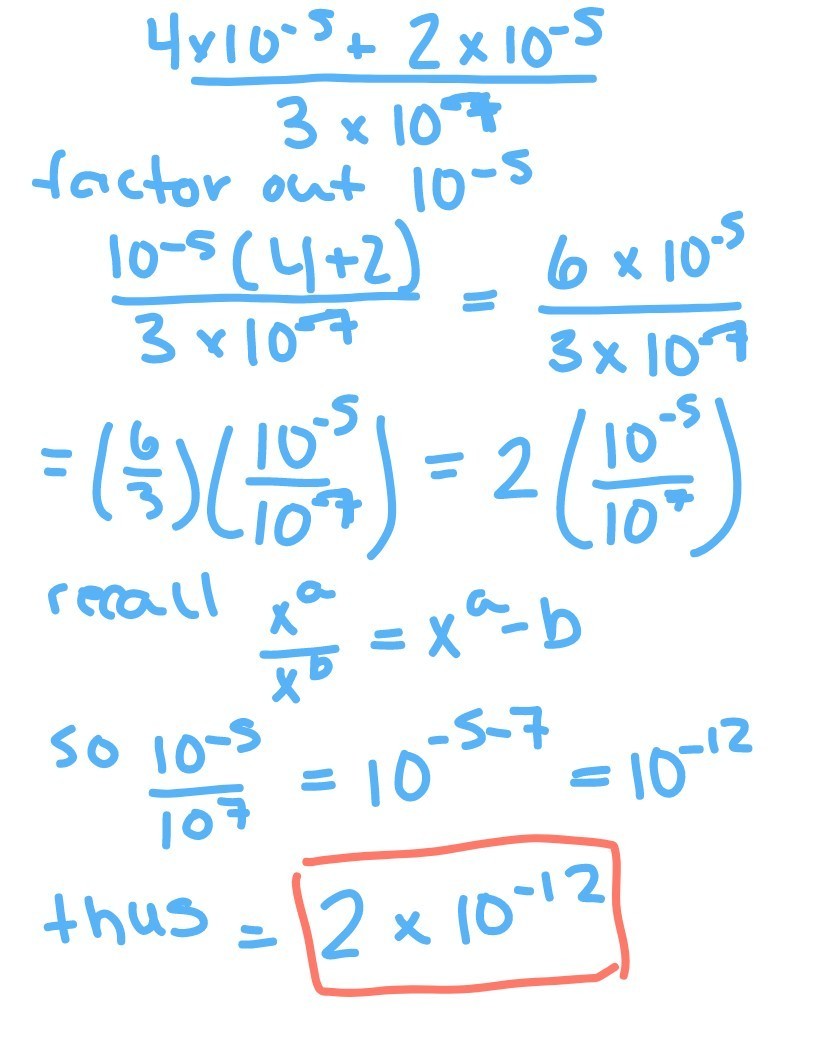 4x10⁻⁵ + 2 x 10⁻⁵
3 x 10⁻⁷
factor out 10⁻⁵
10⁻⁵ (4+2) / 3 x 10⁻⁷ = 6 x 10⁻⁵ / 3 x 10⁻⁷
= (6/3)(10⁻⁵/10⁻⁷) = 2(10⁻⁵/10⁷)
recall xᵃ/xᵇ = xᵃ - b
so 10⁻⁵/10⁷ = 10⁻⁵⁻⁷ = 10⁻¹²
thus = 2 x 10⁻¹²